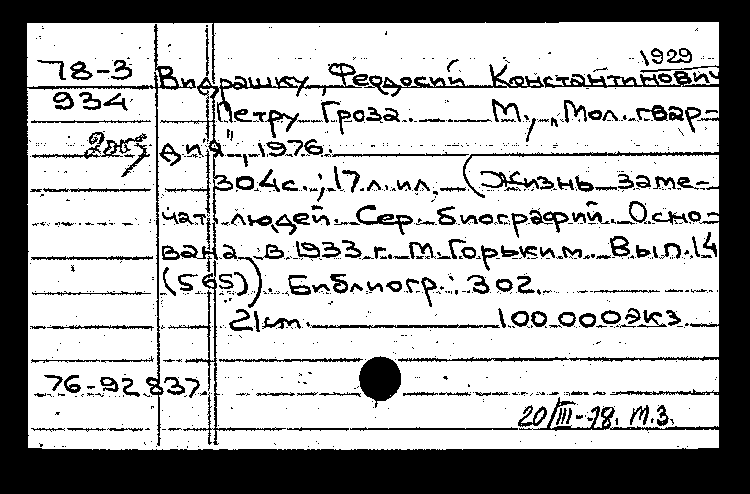 1929
78-3 Видрашку, Феодосий Константинович
934 Петру Гроза. М., "Мол. гвар-
2экз дия", 1976.
304с.; 17 л. ил. (Жизнь заме-
чат. людей. Сер. биографий. Осно-
вана в 1933 г. М. Горьким. Вып. 14
(565)). Библиогр.: 302.
21см. 100 000экз
76-92837
20/III-78. М.З.